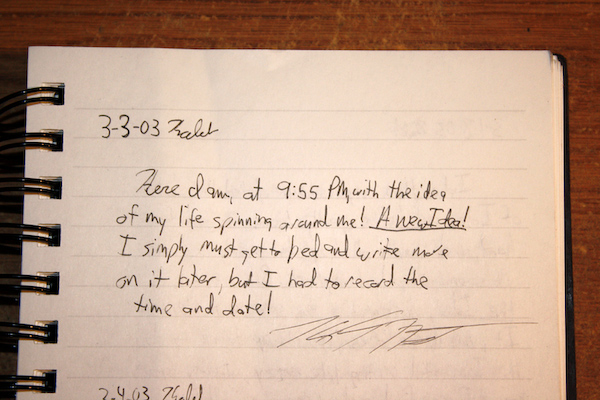 3-3-03
Here I am, at 9:55 PM, with the idea
of my life spinning around me! A new Idea!
I simply must get to bed and write more
on it later, but I had to record the
time and date!